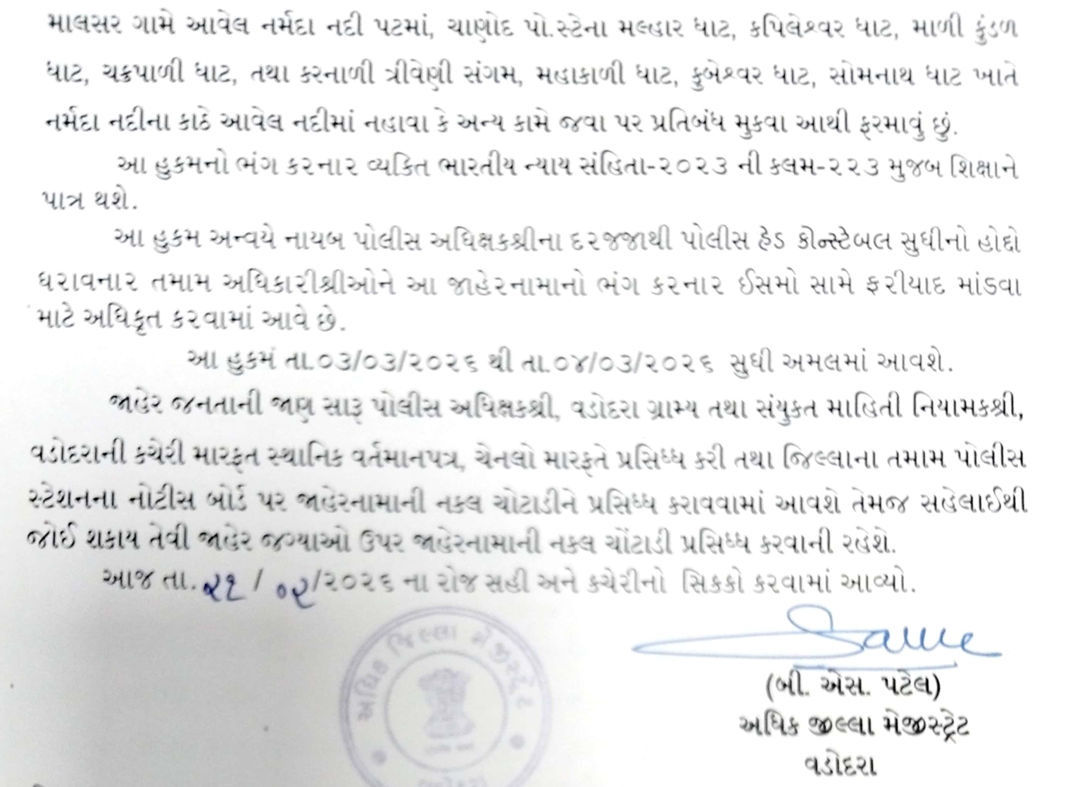 માલસર ગામે આવેલ નર્મદા નદી પટમાં, ચાણોદ પો.સ્ટેના મલ્હાર ઘાટ, કપિલેશ્વર ઘાટ, માળી કુંડળ
ઘાટ, ચક્રપાળી ઘાટ, તથા કરનાળી ત્રીવેણી સંગમ, મહાકાળી ઘાટ, કુબેશ્વર ઘાટ, સોમનાથ ઘાટ ખાતે
નર્મદા નદીના કાઠે આવેલ નદીમાં નહાવા કે અન્ય કામે જવા પર પ્રતિબંધ મુકવા આથી ફરમાવું છું.
આ હુકમનો ભંગ કરનાર વ્યકિત ભારતીય ન્યાય સંહિતા-૨૦૨૩ ની કલમ-૨૨૩ મુજબ શિક્ષાને
પાત્ર થશે.
આ હુકમ અન્વયે નાયબ પોલીસ અધિક્ષકશ્રીના દરજ્જાથી પોલીસ હેડ કોન્સ્ટેબલ સુધીનો હોદ્દો
ધરાવનાર તમામ અધિકારીશ્રીઓને આ જાહેરનામાનો ભંગ કરનાર ઈસમો સામે ફરીયાદ માંડવા
માટે અધિકૃત કરવામાં આવે છે.
આ હુકમ તા.૦૩/૦૩/૨૦૨૬ થી તા.૦૪/૦૩/૨૦૨૬ સુધી અમલમાં આવશે.
જાહેર જનતાની જાણ સારૂ પોલીસ અધિક્ષકશ્રી, વડોદરા ગ્રામ્ય તથા સંયુકત માહિતી નિયામકશ્રી,
વડોદરાની કચેરી મારફત સ્થાનિક વર્તમાનપત્ર, ચેનલો મારફતે પ્રસિધ્ધ કરી તથા જિલ્લાના તમામ પોલીસ
સ્ટેશનના નોટીસ બોર્ડ પર જાહેરનામાની નકલ ચોટાડીને પ્રસિધ્ધ કરાવવામાં આવશે તેમજ સહેલાઈથી
જોઈ શકાય તેવી જાહેર જગ્યાઓ ઉપર જાહેરનામાની નકલ ચોંટાડી પ્રસિધ્ધ કરવાની રહેશે.
આજ તા. ૨૧/૦૨/૨૦૨૬ ના રોજ સહી અને કચેરીનો સિકકો કરવામાં આવ્યો.
અધિક જિલ્લા મેજીસ્ટ્રેટ
વડોદરા
(બી. એસ. પટેલ)
અધિક જીલ્લા મેજીસ્ટ્રેટ
વડોદરા